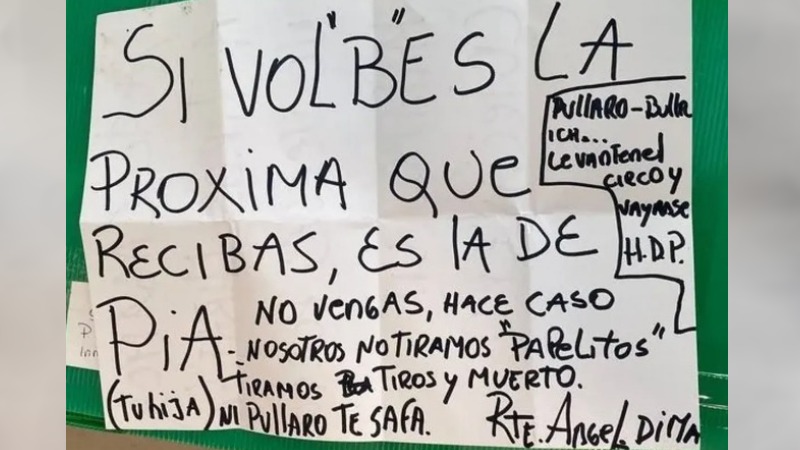 SI VOL"B"ES LA
PROXIMA QUE
RECIBAS, ES LA DE
PIA
(Tu hija)
PULLARO - Bullr
ICH...
Levanten el
CIRCO Y
VAYANSE
H.D.P.
NO VENGAS, HACE CASO
NOSOTROS NO TIRAMOS "PAPELITOS"
TIRAMOS TIROS Y MUERTO.
NI PULLARO TE SAFA.
RTE. ANGEL. DIMA